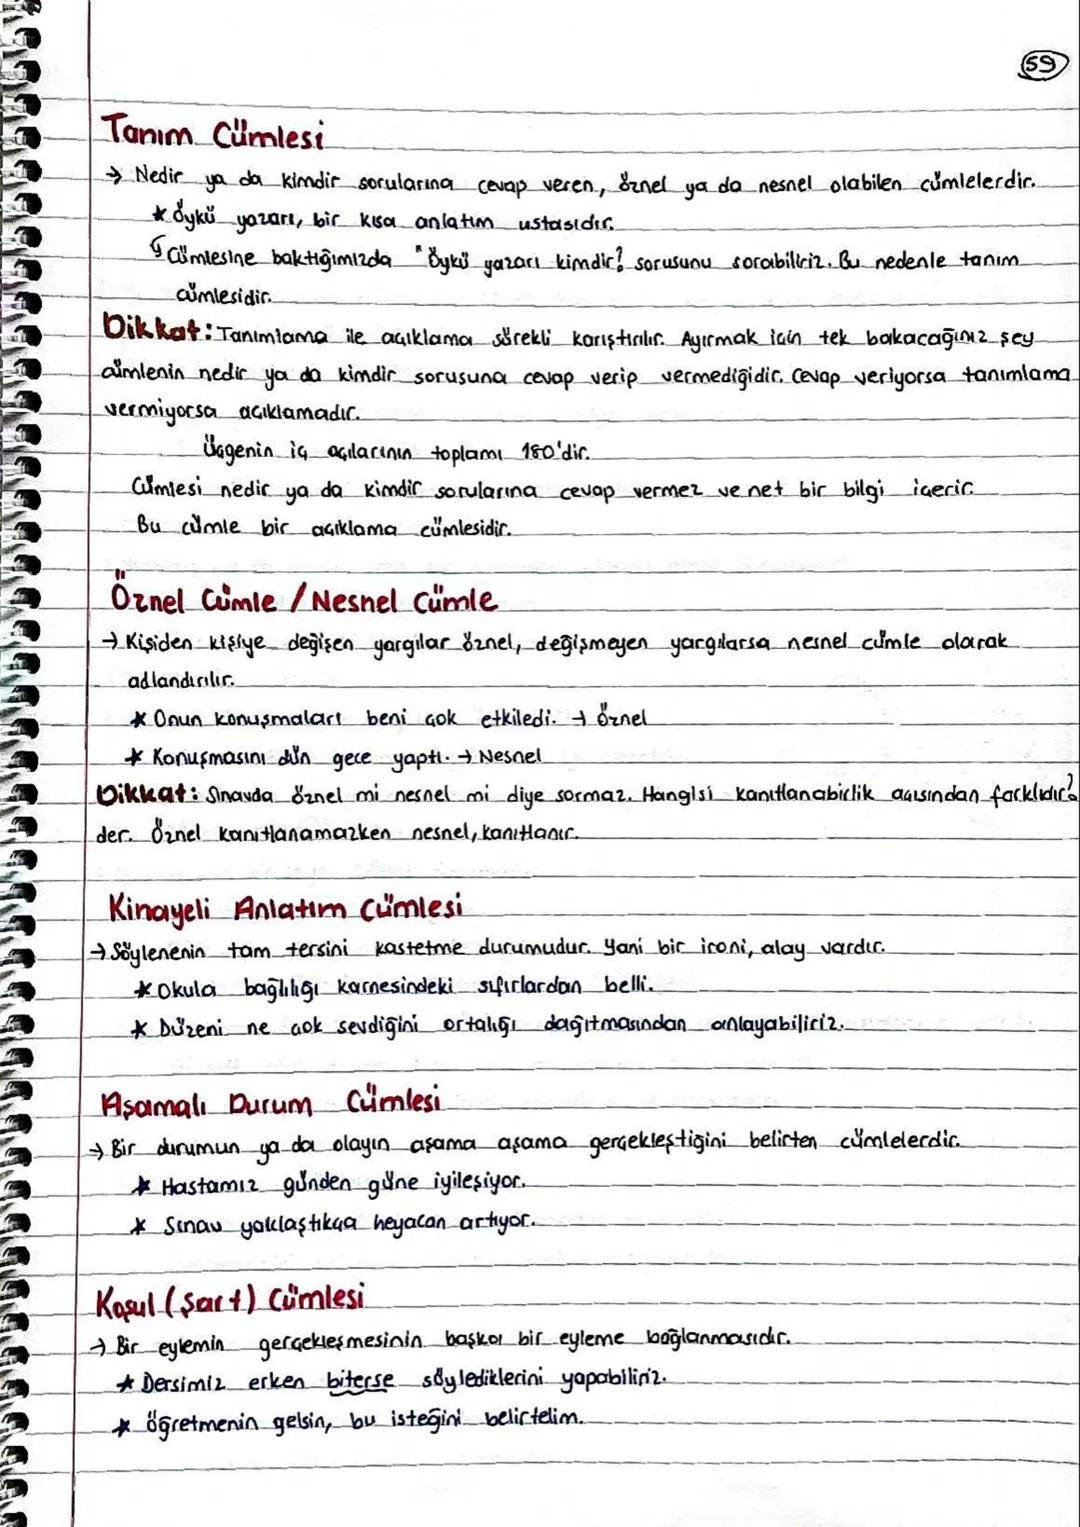 59
Tanım Cümlesi
→ Nedir ya da kimdir sorularına cevap veren, öznel ya da nesnel olabilen cümlelerdir.
* Öykü yazarı, bir kısa anlatım ustasıdır.
↳ Cümlesine baktığımızda "Öykü yazarı kimdir? sorusunu sorabiliriz. Bu nedenle tanım
cümlesidir.
Dikkat: Tanımlama ile açıklama sürekli karıştırılır. Ayırmak için tek bakacağınız şey
cümlenin nedir ya da kimdir sorusuna cevap verip vermediğidir. Cevap veriyorsa tanımlama
vermiyorsa açıklamadır.
Üçgenin iç açılarının toplamı 180'dir.
Cümlesi nedir ya da kimdir sorularına cevap vermez ve net bir bilgi içerir.
Bu cümle bir açıklama cümlesidir.
Öznel Cümle / Nesnel Cümle
→ Kişiden kişiye değişen yargılar öznel, değişmeyen yargılarsa nesnel cümle olarak
adlandırılır.
* Onun konuşmaları beni çok etkiledi. → Öznel
* Konuşmasını dün gece yaptı. → Nesnel
Dikkat: Sınavda öznel mi nesnel mi diye sormaz. Hangisi kanıtlanabirlik açısından farklıdır?
der. Öznel kanıtlanamazken nesnel, kanıtlanır.
Kinayeli Anlatım Cümlesi
→ Söylenenin tam tersini kastetme durumudur. Yani bir ironi, alay vardır.
* Okula bağlılığı karnesindeki sıfırlardan belli.
* Düzeni ne çok sevdiğini ortalığı dağıtmasından anlayabiliriz.
Aşamalı Durum Cümlesi
→ Bir durumun ya da olayın aşama aşama gerçekleştiğini belirten cümlelerdir.
* Hastamız günden güne iyileşiyor.
* Sınav yaklaştıkça heyacan artıyor.
Koşul (Şart) Cümlesi
→ Bir eylemin gerçekleşmesinin başka bir eyleme bağlanmasıdır.
* Dersimiz erken biterse söylediklerini yapabiliriz.
* Öğretmenin gelsin, bu isteğini belirtelim.